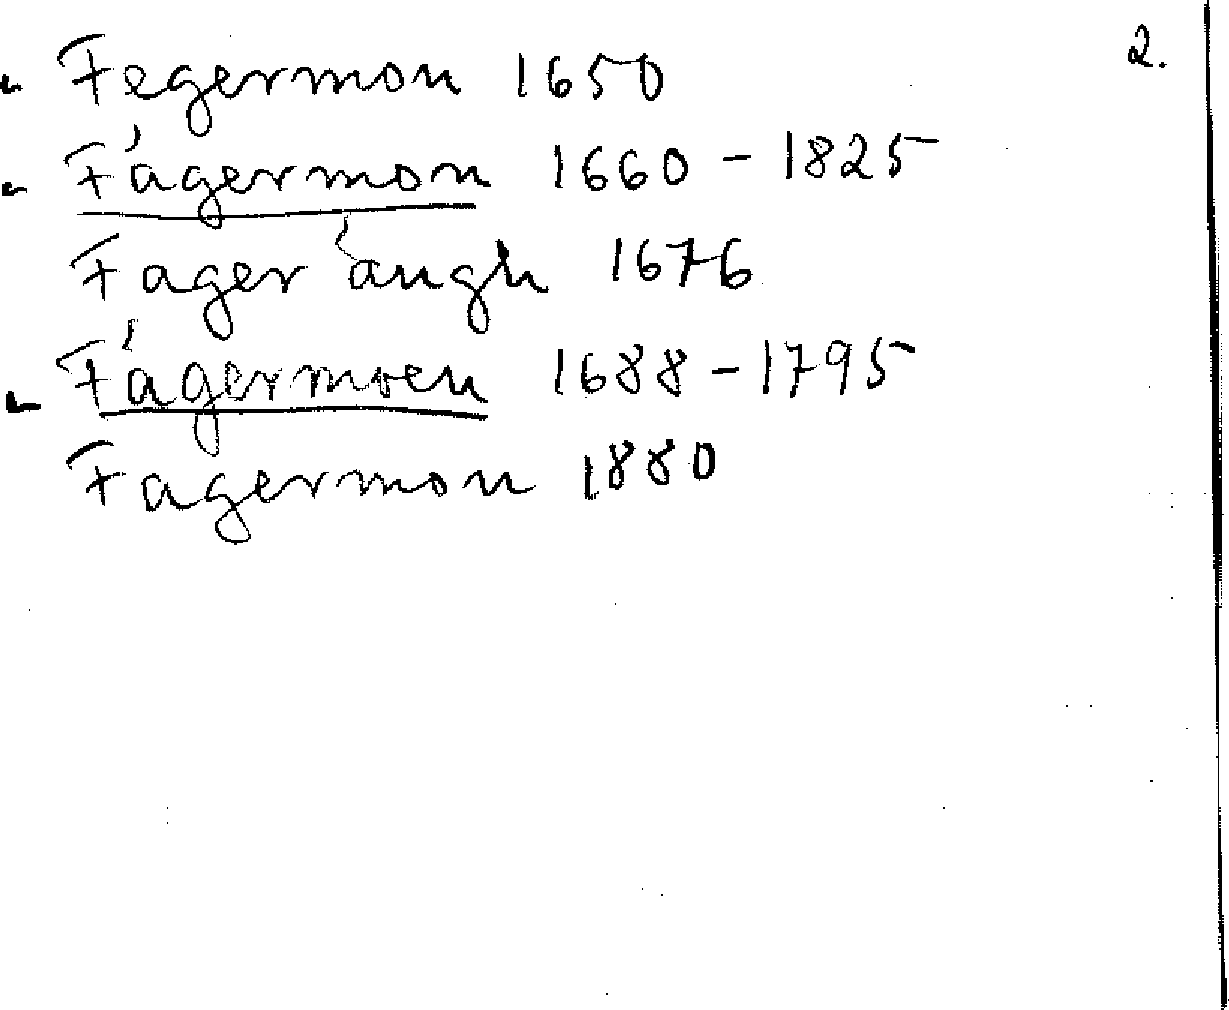 2.
Fegermon 1650
Fágermon 1660 - 1825
Fager ángh 1676
Fágermoen 1688 - 1795
Fagermon 1880